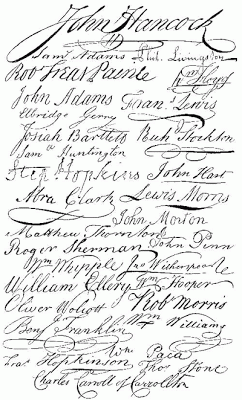 John Hancock
Sam¹ Adams Phil. Livingston
Rob Treat Paine Wm Floyd
John Adams Fran.s Lewis
Elbridge Gerry
Josiah Bartlett Rich Stockton
Sam¹ Huntington
Step Hopkins John Hart
Abra Clark Lewis Morris
John Morton
Matthew Thornton
Roger Sherman John Penn
Wm Whipple Jno Witherspoon
William Ellery Wm Hooper
Oliver Wolcott Rob Morris
Benj Franklin Wm Williams
Fras Hopkinson Wm Paca
Tho Stone
Charles Carroll of Carrollton